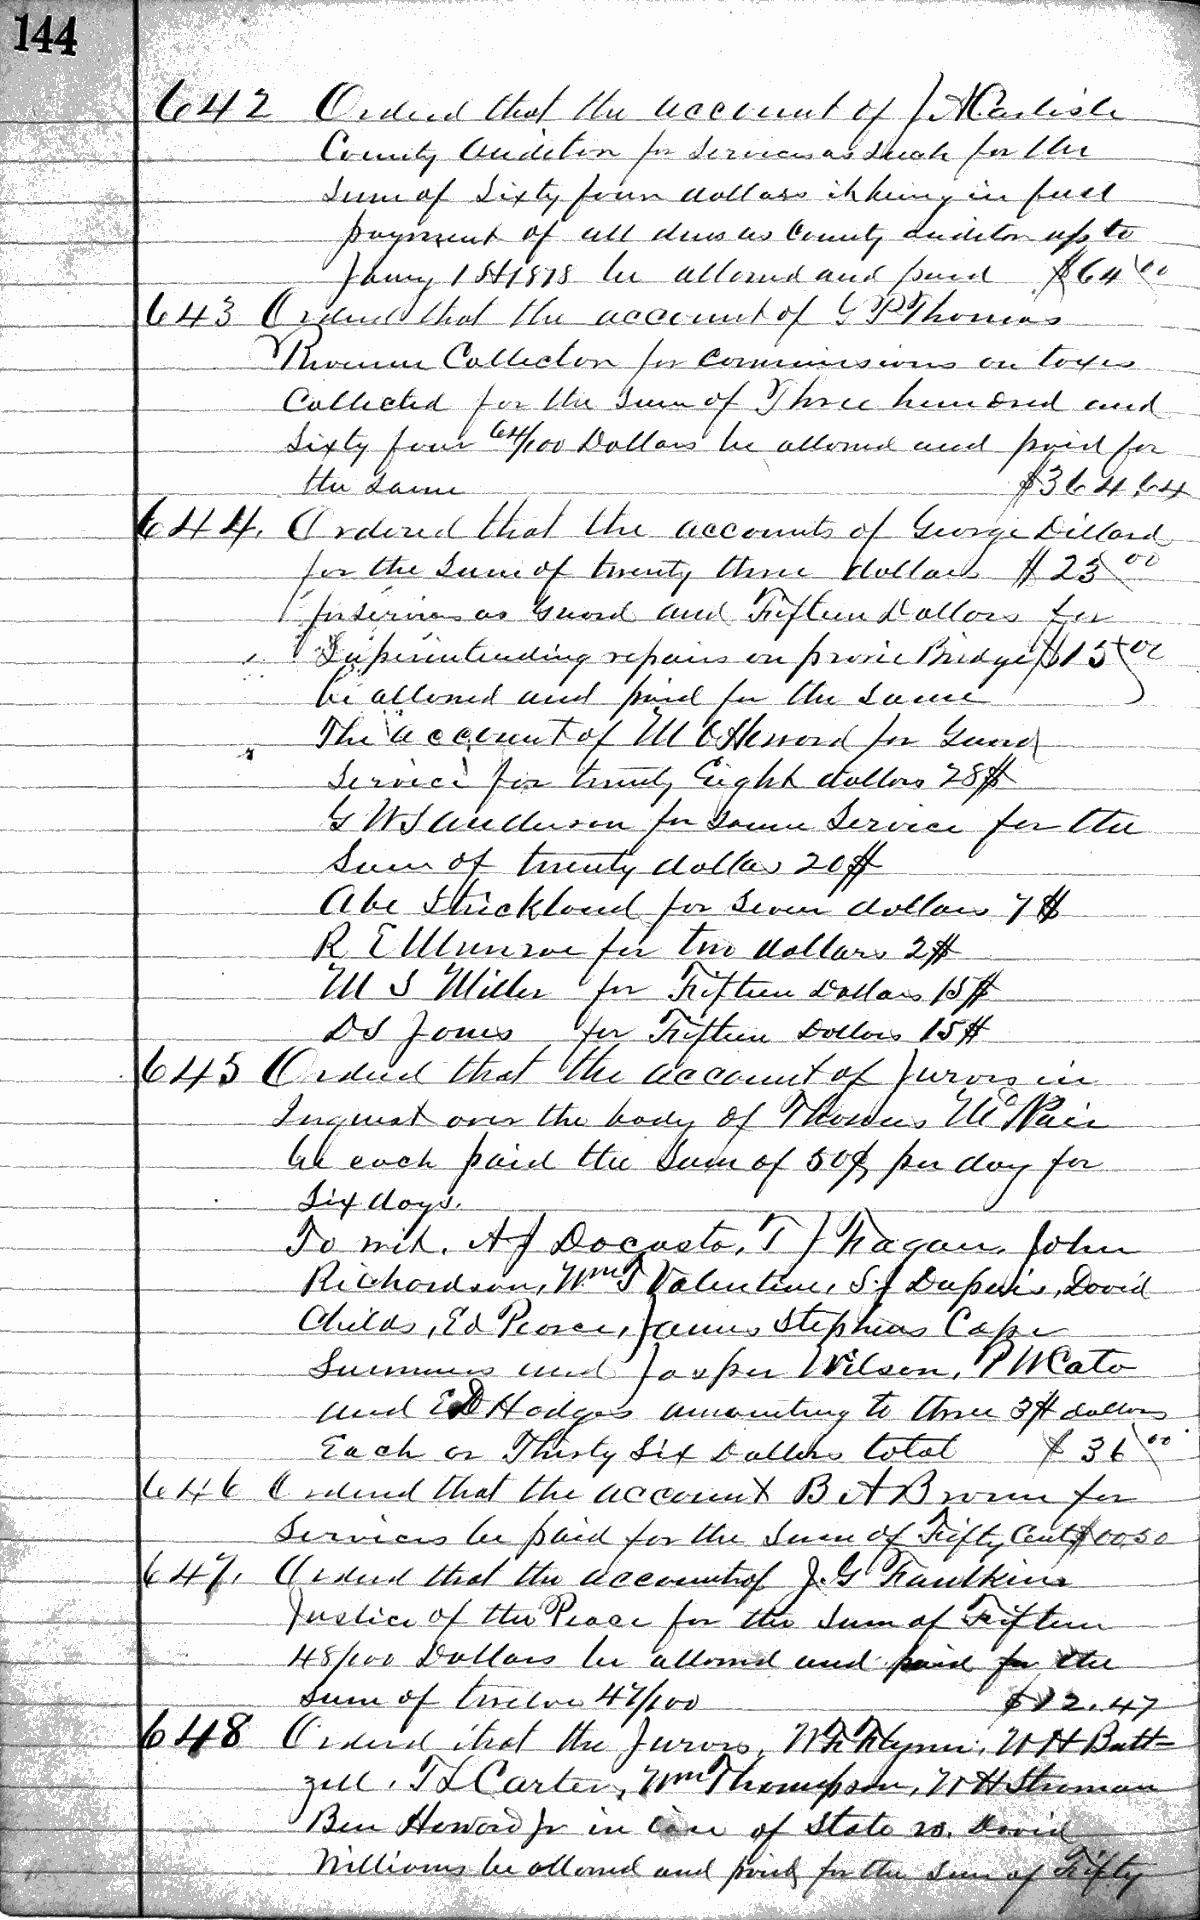 144
642 Ordered that the account of J A Carlisle
County Auditor for services as such for the
Sum of Sixty four dollars it being in full
payment of all dues as County auditor up to
Jany 1st 1878 be allowed and paid $64 00
643 Ordered that the account of G P Thomas
Revenue Collector for commissions on taxes
Collected for the Sum of Three hundred and
Sixty four 64/100 Dollars be allowed and paid for
the same $364.64
644. Ordered that the accounts of George Dillard
for the Sum of twenty three dollars $23 00
for services as Guard and Fifteen Dollars for
Superintending repairs on prarie Bridge $15 00
be allowed and paid for the same
The account of M C Howard for Guard
Service for twenty Eight dollars 28$
G W Sanderson for same Service for the
Sum of twenty dollars 20$
Abe Strickland for Seven dollars 7$
R E Munroe for two dollars 2$
M S Miller for Fifteen Dollars 15$
D S Jones for Fifteen Dollars 15$
645 Ordered that the account of Jurors in
Inquest over the body of Thomas McNair
be each paid the Sum of 50¢ per day for
Six days.
To wit. A J Dacosta, T J Fagan, John
Richardson, Wm T Valentine, S. J Dupuis, David
Childs, Ed Pearce, James Stephens Cape
Summers and Jasper Wilson, P W Cato
and E D Hodges amounting to three 3$ dollars
Each or Thirty Six Dollars total $36 00
646 Ordered that the account B A Brown for
Services be paid for the Sum of Fifty Cents $0050
647. Ordered that the account of J. G Faulkins
Justice of the Peace for the Sum of Fifteen
48/100 Dollars be allowed and paid for the
Sum of twelve 47/100 $12.47
648 Ordered that the Jurors, W F Flynn, W H Batt-
zell, T L Carter, Wm Thompson, W H Stroman
Ben Howard Jr in Case of State vs. David
Williams be allowed and paid for the Sum of Fifty